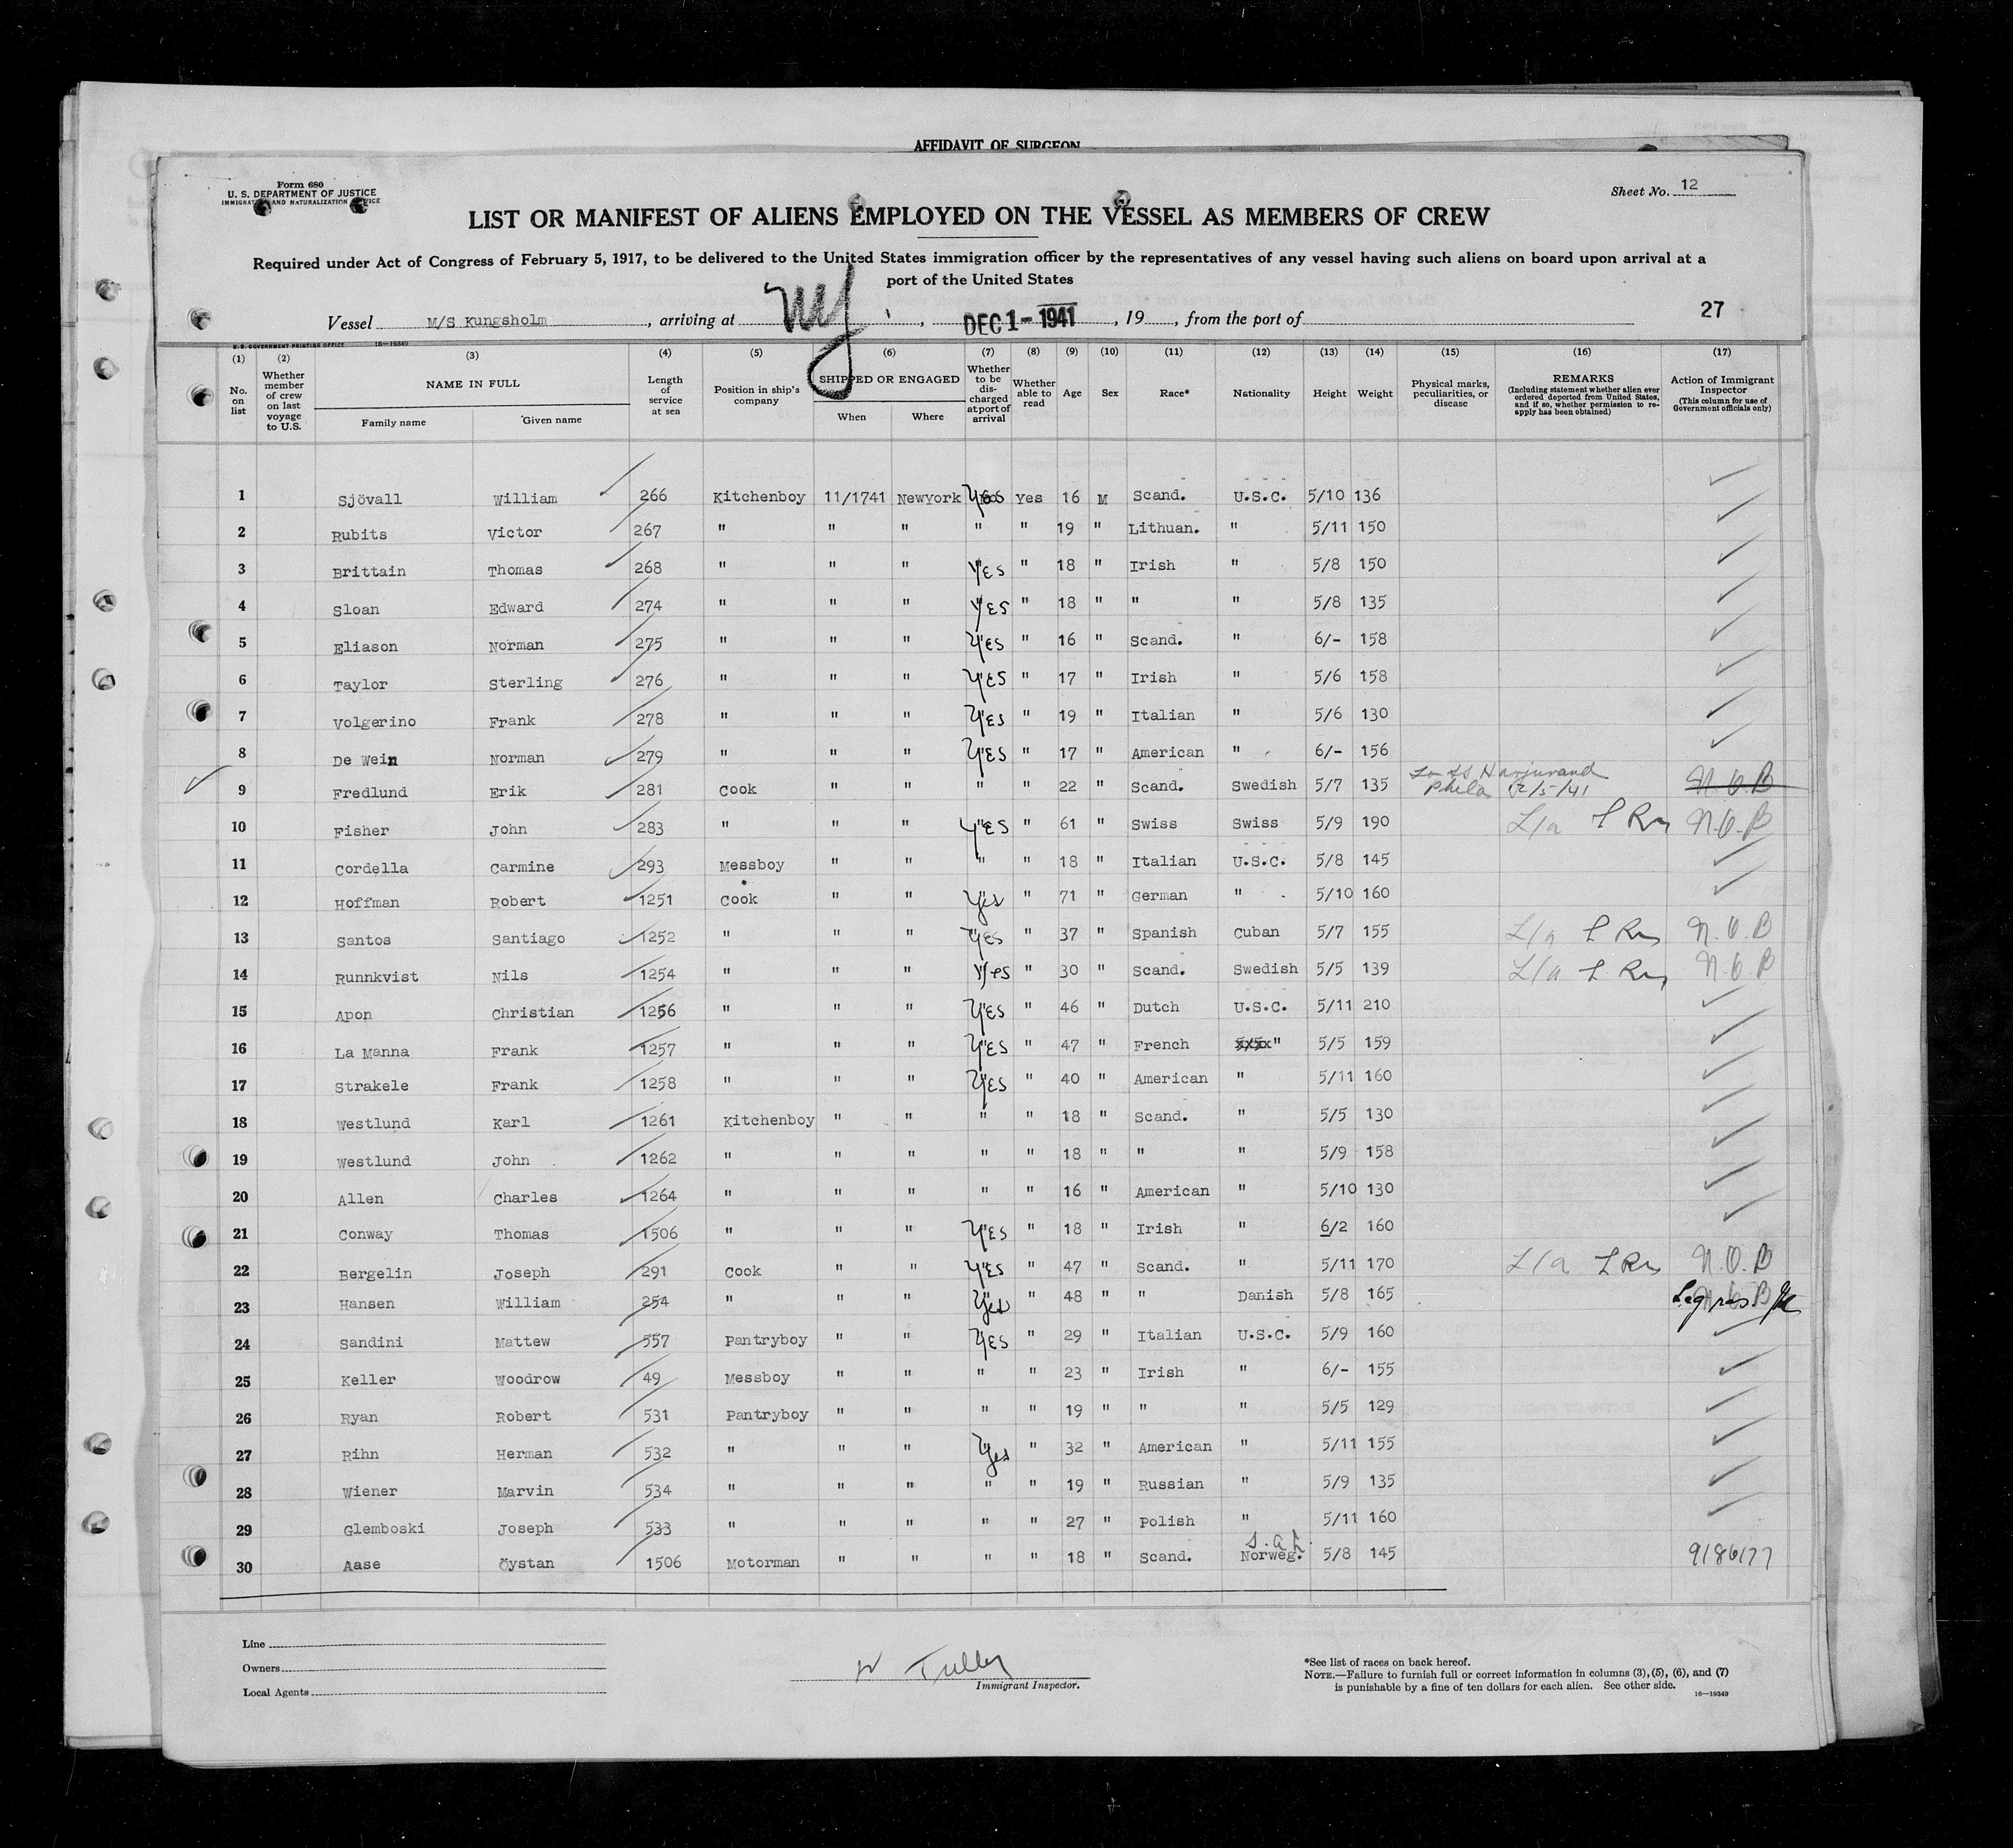 AFFIDAVIT OF SURGEON
Form 680
U. S. DEPARTMENT OF JUSTICE
IMMIGRATION AND NATURALIZATION SERVICE
Sheet No. 12
LIST OR MANIFEST OF ALIENS EMPLOYED ON THE VESSEL AS MEMBERS OF CREW
Required under Act of Congress of February 5, 1917, to be delivered to the United States immigration officer by the representatives of any vessel having such aliens on board upon arrival at a
port of the United States
Vessel M/S Kungsholm, arriving at NY, DEC 1 - 1941, 19, from the port of 27
U.S. GOVERNMENT PRINTING OFFICE 16—19349
(1) (2) (3) (4) (5) (6) (7) (8) (9) (10) (11) (12) (13) (14) (15) (16) (17)
No. on list
Whether member of crew on last voyage to U.S.
NAME IN FULL
Family name Given name
Length of service at sea
Position in ship's company
SHIPPED OR ENGAGED
When Where
Whether to be discharged at port of arrival
Whether able to read
Age Sex Race* Nationality Height Weight
Physical marks, peculiarities, or disease
REMARKS
(Including statement whether alien ever ordered deported from United States, and if so, whether permission to reapply has been obtained)
Action of Immigrant Inspector
(This column for use of Government officials only)
1 Sjövall William 266 Kitchenboy 11/1741 NewYork Yes Yes 16 M Scand. U.S.C. 5/10 136
2 Rubits Victor 267 " " " " " 19 " Lithuan. " 5/11 150
3 Brittain Thomas 268 " " " Yes " 18 " Irish " 5/8 150
4 Sloan Edward 274 " " " Yes " 18 " " " 5/8 135
5 Eliason Norman 275 " " " Yes " 16 " Scand. " 6/- 158
6 Taylor Sterling 276 " " " Yes " 17 " Irish " 5/6 158
7 Volgerino Frank 278 " " " Yes " 19 " Italian " 5/6 130
8 De Wein Norman 279 " " " Yes " 17 " American " 6/- 156
9 Fredlund Erik 281 Cook " " " " 22 " Scand. Swedish 5/7 135 Phila 12/5/41 N.O.B
10 Fisher John 283 " " " Yes " 61 " Swiss Swiss 5/9 190 L/a L Res N.O.B
11 Cordella Carmine 293 Messboy " " " " 18 " Italian U.S.C. 5/8 145
12 Hoffman Robert 1251 Cook " " Yes " 71 " German " 5/10 160
13 Santos Santiago 1252 " " " Yes " 37 " Spanish Cuban 5/7 155 L/a L Res N.O.B
14 Runnkvist Nils 1254 " " " Yes " 30 " Scand. Swedish 5/5 139 L/a L Res N.O.B
15 Apon Christian 1256 " " " Yes " 46 " Dutch U.S.C. 5/11 210
16 La Manna Frank 1257 " " " Yes " 47 " French " 5/5 159
17 Strakele Frank 1258 " " " Yes " 40 " American " 5/11 160
18 Westlund Karl 1261 Kitchenboy " " " " 18 " Scand. " 5/5 130
19 Westlund John 1262 " " " " " 18 " " " 5/9 158
20 Allen Charles 1264 " " " " " 16 " American " 5/10 130
21 Conway Thomas 1506 " " " Yes " 18 " Irish " 6/2 160
22 Bergelin Joseph 291 Cook " " Yes " 47 " Scand. " 5/11 170 L/a L Res N.O.B
23 Hansen William 254 " " " Yes " 48 " " Danish 5/8 165 Leg res.
24 Sandini Mattew 557 Pantryboy " " Yes " 29 " Italian U.S.C. 5/9 160
25 Keller Woodrow 49 Messboy " " " " 23 " Irish " 6/- 155
26 Ryan Robert 531 Pantryboy " " " " 19 " " " 5/5 129
27 Rihn Herman 532 " " " Yes " 32 " American " 5/11 155
28 Wiener Marvin 534 " " " " " 19 " Russian " 5/9 135
29 Glemboski Joseph 533 " " " " " 27 " Polish " 5/11 160
30 Aase Öystan 1506 Motorman " " " " 18 " Scand. Norweg. 5/8 145 9186177
Line
Owners
Local Agents
W Tully
Immigrant Inspector.
*See list of races on back hereof.
NOTE.—Failure to furnish full or correct information in columns (3), (5), (6), and (7)
is punishable by a fine of ten dollars for each alien. See other side.
16—19349